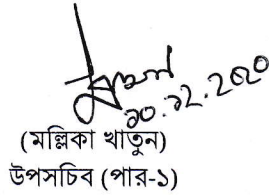 ১০.১২.২০২০
(মল্লিকা খাতুন)
উপসচিব (পার-১)